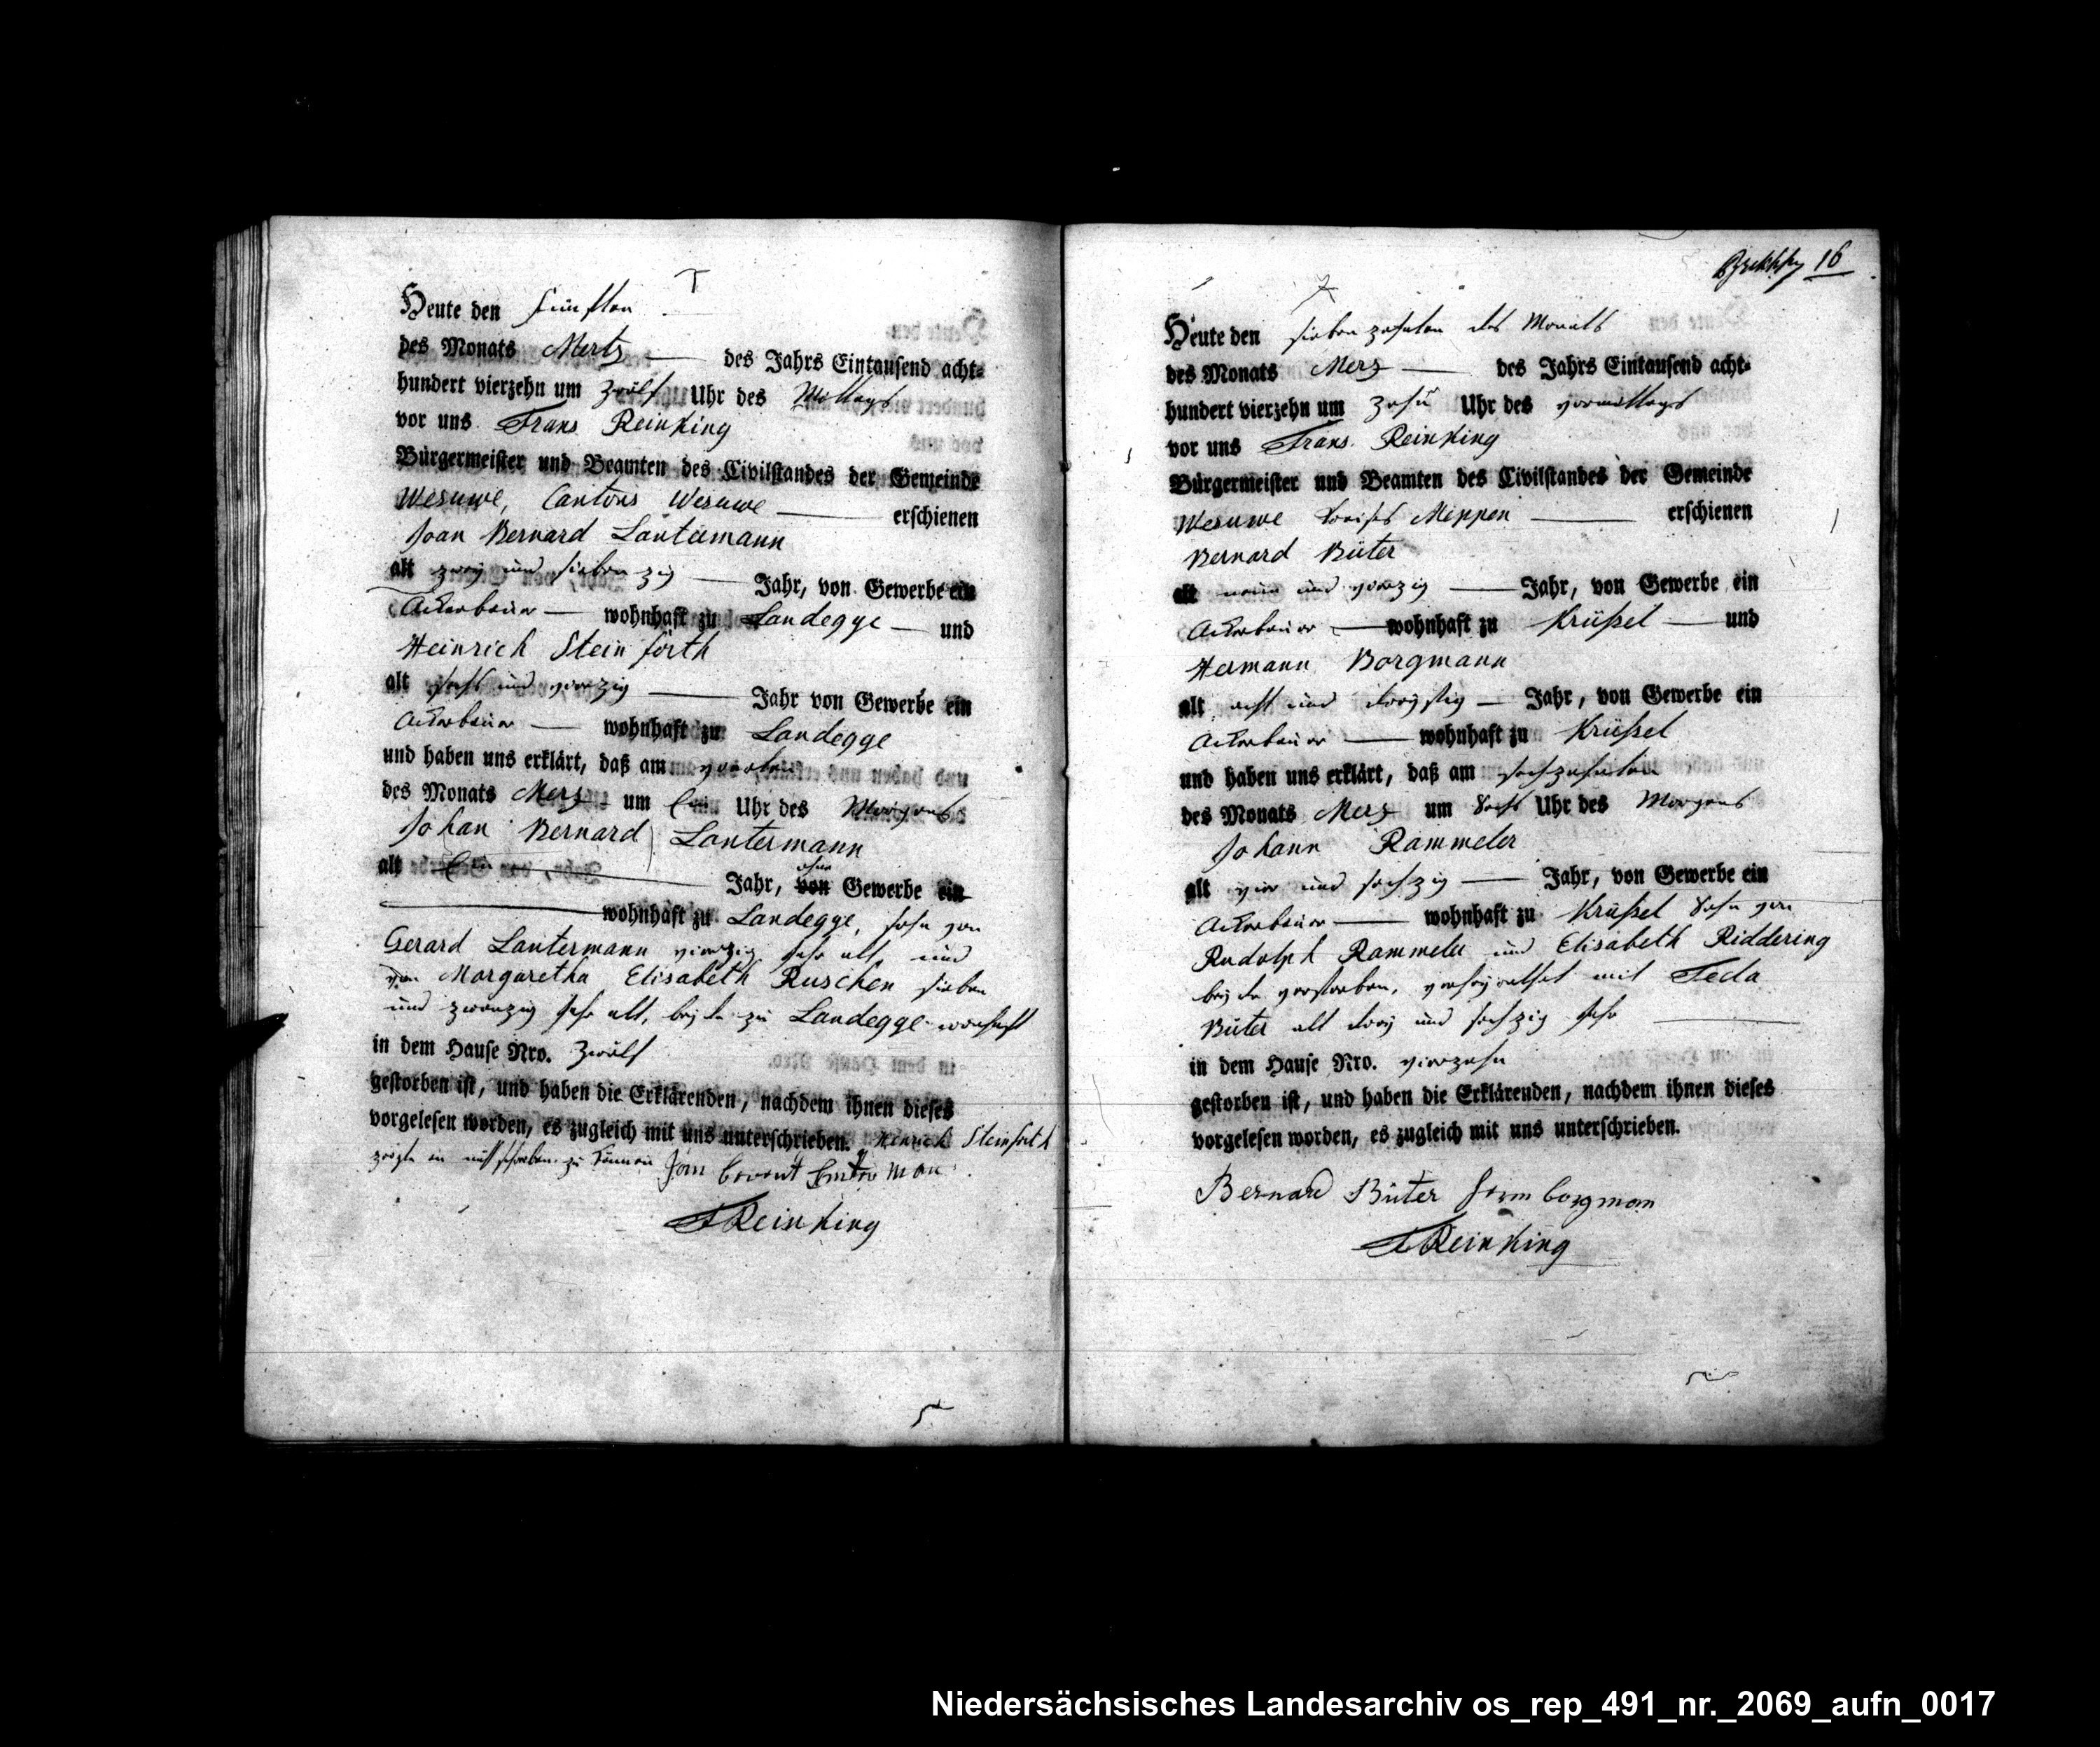 Heute den fünften
des Monats Mertz des Jahrs Eintausend acht-
hundert vierzehn um zwölf Uhr des Mittags
vor uns Frans Reinking
Bürgermeister und Beamten des Civilstandes der Gemeinde
Wesuwe, Cantons Wesuwe erschienen
Joan Bernard Lantermann
alt zwey und siebenzig Jahr, von Gewerbe ein
Ackerbauer wohnhaft zu Landegge und
Heinrich Steinforth
alt sechs und vierzig Jahr von Gewerbe ein
Ackerbauer wohnhaft zu Landegge
und haben uns erklärt, daß am vierten
des Monats Merz um Ein Uhr des Morgens
Johan Bernard Lantermann
alt Ein Jahr, ohne von Gewerbe ein
wohnhaft zu Landegge, sohn von
Gerard Lantermann vierzig Jahr alt, und
von Margaretha Elisabeth Ruschen sieben
und zwanzig Jahr alt, beyde zu Landegge wonhaft
in dem Hause Nro. Zwölf
gestorben ist, und haben die Erklärenden, nachdem ihnen dieses
vorgelesen worden, es zugleich mit uns unterschrieben. Henrich Steinforth
zeigte an nicht schreiben zu können Jan berent Lanterman
FReinking
16
Heute den siebenzehnten des Monats
des Monats Merz des Jahrs Eintausend acht-
hundert vierzehn um zehn Uhr des vormittags
vor uns Frans Reinking
Bürgermeister und Beamten des Civilstandes der Gemeinde
Wesuwe Kreises Meppen erschienen
Bernard Büter
alt neun und vierzig Jahr, von Gewerbe ein
Ackerbauer wohnhaft zu Krüßel und
Hermann Borgmann
alt acht und dreyßig Jahr, von Gewerbe ein
Ackerbauer wohnhaft zu Krüßel
und haben uns erklärt, daß am sechzehnten
des Monats Merz um Sechs Uhr des Morgens
Johann Rammeler
alt vier und sechzig Jahr, von Gewerbe ein
Ackerbauer wohnhaft zu Krüßel Sohn von
Rudolph Rammeler und Elisabeth Riddering
beyde verstorben, verheyrathet mit Tecla
Büter alt drey und sechzig Jahr
in dem Hause Nro. vierzehn
gestorben ist, und haben die Erklärenden, nachdem ihnen dieses
vorgelesen worden, es zugleich mit uns unterschrieben.
Bernard Büter Herm borgman
FReinking
Niedersächsisches Landesarchiv os_rep_491_nr._2069_aufn_0017